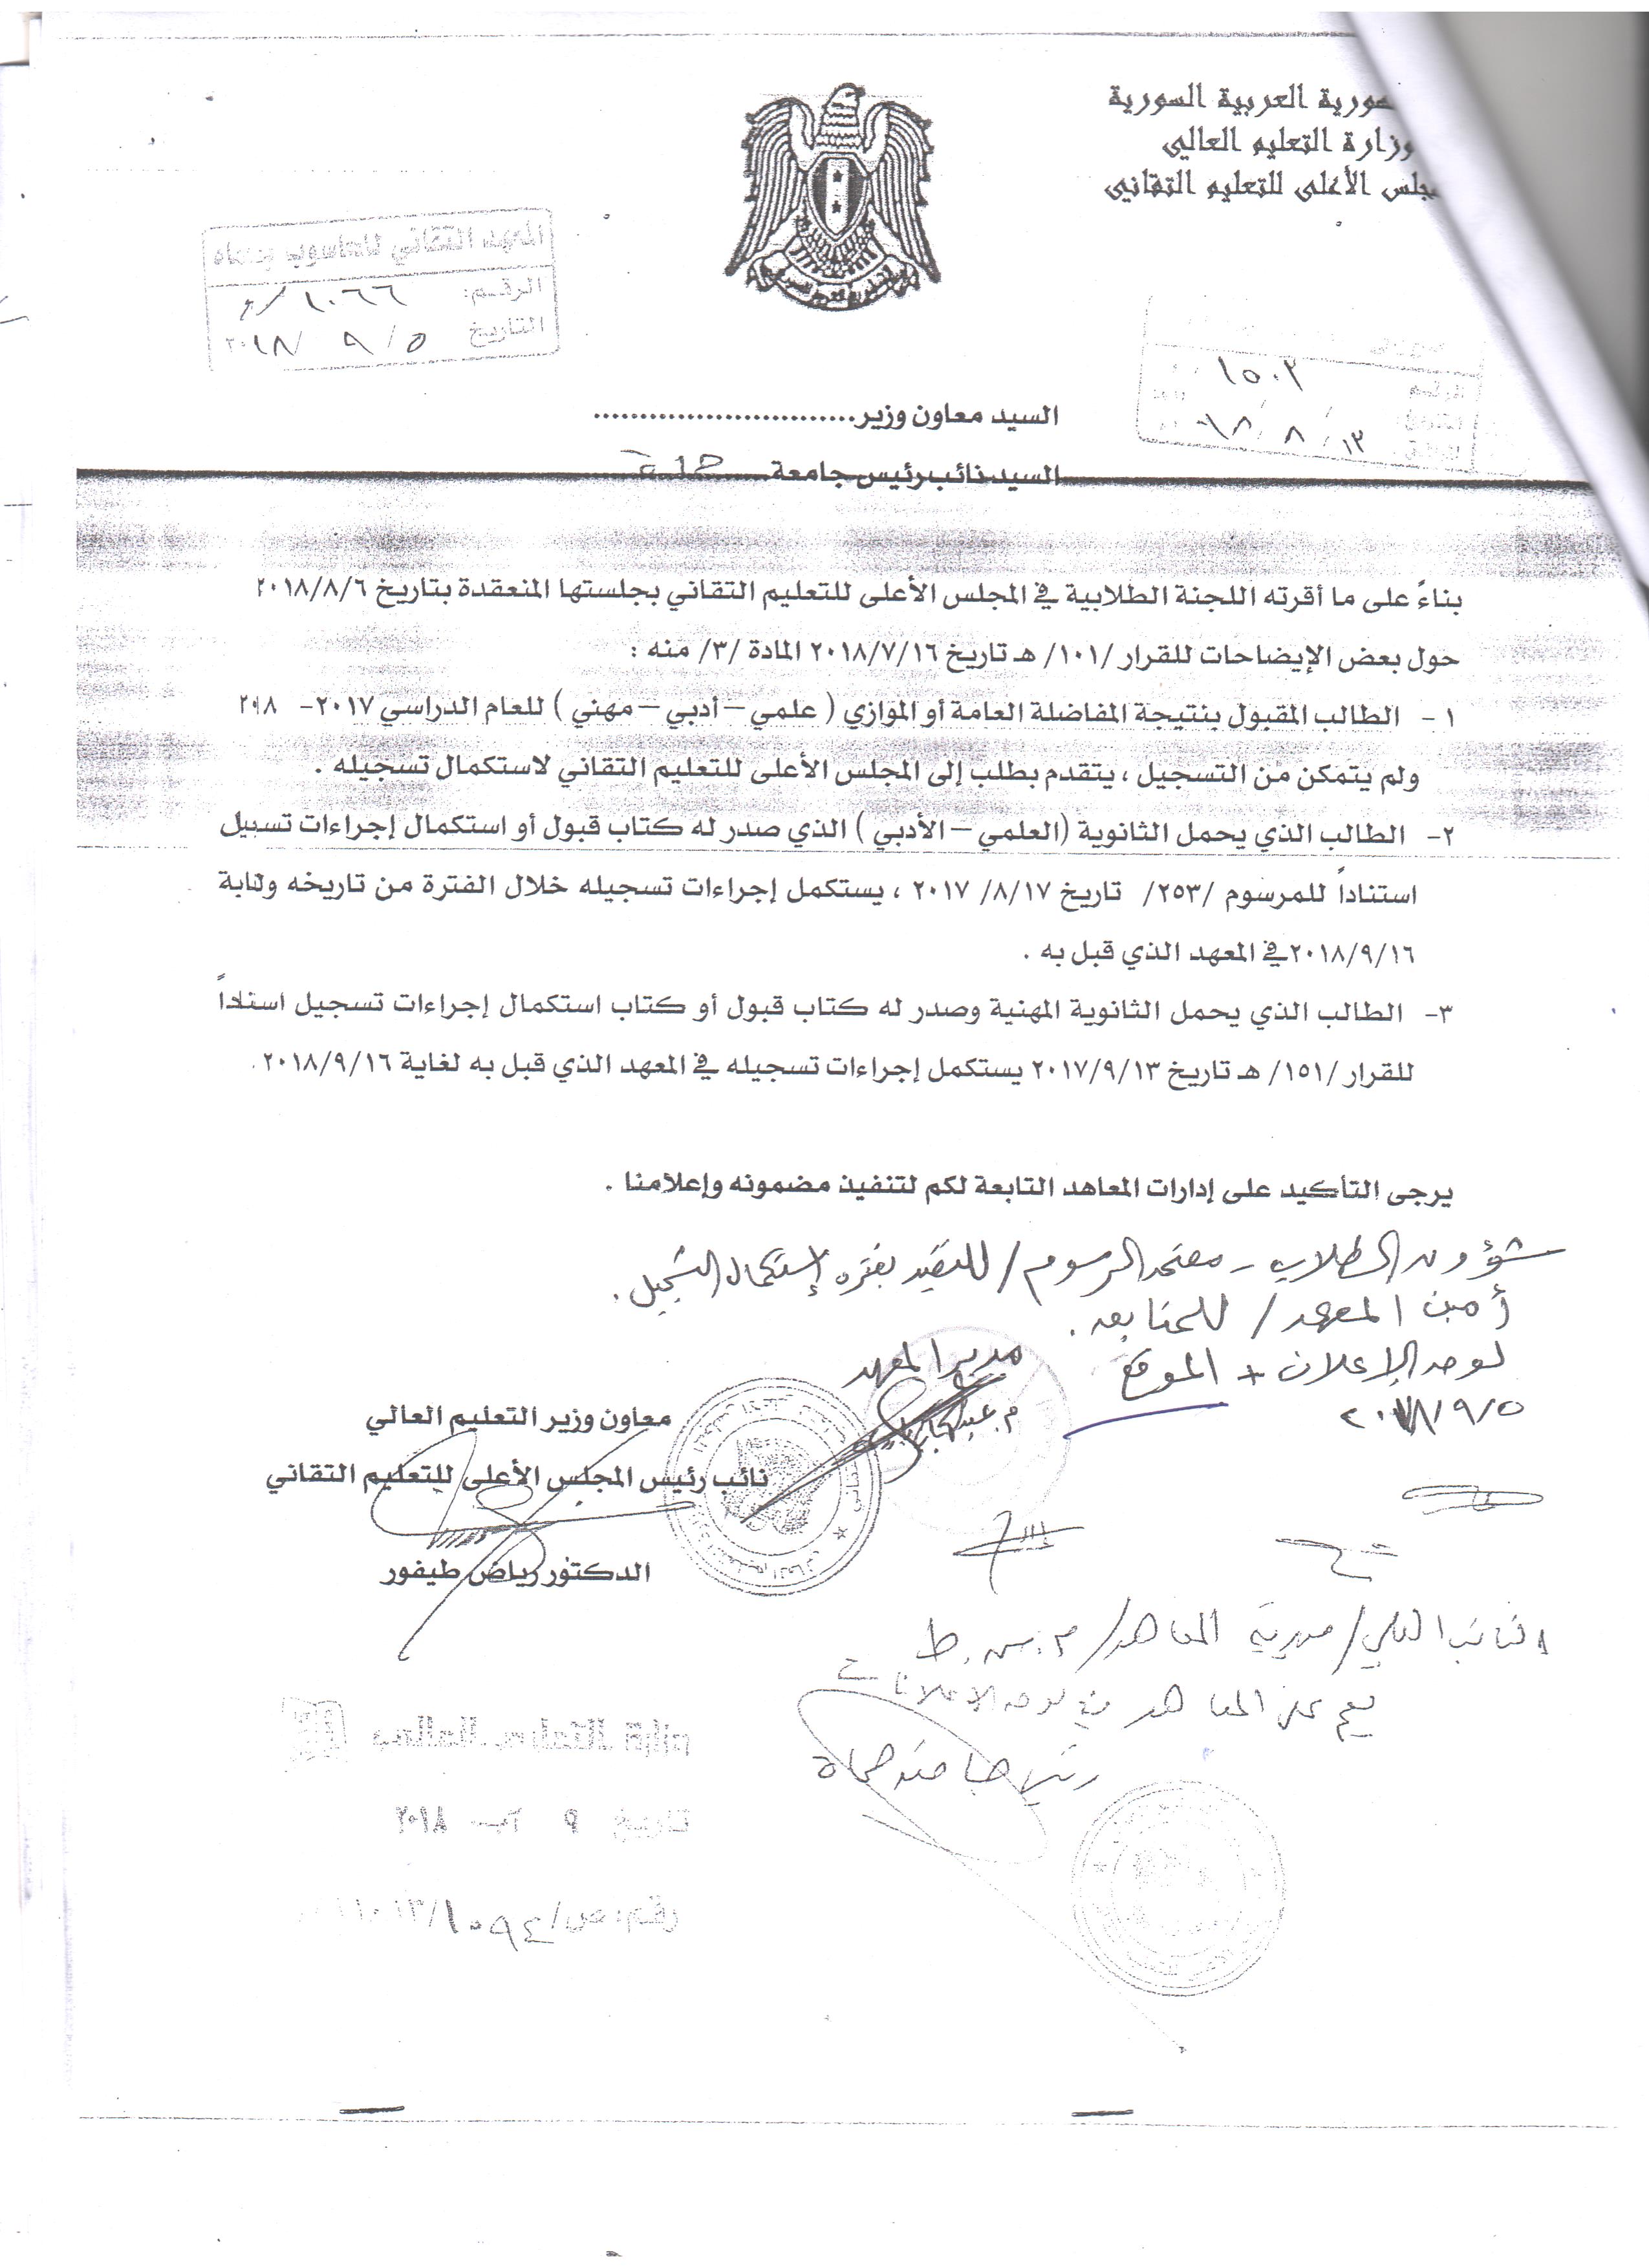 ـهورية العربية السورية
وزارة التعليم العالي
ـجلس الأعلى للتعليم التقاني
المعهد التقاني للحاسوب
الرقم: ١٠٦٦/
التاريخ ٥ / ٩ / ٢٠١٨
١٥٠٢
١٣ / ٨ /
السيد معاون وزير............................
السيد نائب رئيس جامعة حماة
بناءً على ما أقرته اللجنة الطلابية في المجلس الأعلى للتعليم التقاني بجلستها المنعقدة بتاريخ ٢٠١٨/٨/٦
حول بعض الإيضاحات للقرار /١٠١/ هـ تاريخ ٢٠١٨/٧/١٦ المادة /٣/ منه :
١- الطالب المقبول بنتيجة المفاضلة العامة أو الموازي ( علمي – أدبي – مهني ) للعام الدراسي ٢٠١٧- ٢٠١٨
ولم يتمكن من التسجيل ، يتقدم بطلب إلى المجلس الأعلى للتعليم التقاني لاستكمال تسجيله .
٢- الطالب الذي يحمل الثانوية (العلمي – الأدبي ) الذي صدر له كتاب قبول أو استكمال إجراءات تسجيل
استناداً للمرسوم /٢٥٣/ تاريخ ٢٠١٧ /٨/١٧ ، يستكمل إجراءات تسجيله خلال الفترة من تاريخه ولغاية
٢٠١٨/٩/١٦ في المعهد الذي قبل به .
٣- الطالب الذي يحمل الثانوية المهنية وصدر له كتاب قبول أو كتاب استكمال إجراءات تسجيل استناداً
للقرار /١٥١/ هـ تاريخ ٢٠١٧/٩/١٣ يستكمل إجراءات تسجيله في المعهد الذي قبل به لغاية ٢٠١٨/٩/١٦ .
يرجى التأكيد على إدارات المعاهد التابعة لكم لتنفيذ مضمونه وإعلامنا .
شؤون الطلاب - معتمد الرسوم / للتقيد بفترة إستكمال التسجيل .
أمين المعهد / للمتابعة .
لوحة الإعلان + الموقع
٢٠١٨/٩/٥
مدير المعهد
معاون وزير التعليم العالي
نائب رئيس المجلس الأعلى للتعليم التقاني
الدكتور رياض طيفور
النائب العلمي / مديرية المعاهد /
يعمم على المعاهد في لوحة الإعلانات
رئيس جامعة حماة
وزارة التعليم العالي
تاريخ ٩ آب ٢٠١٨
رقم: ص/